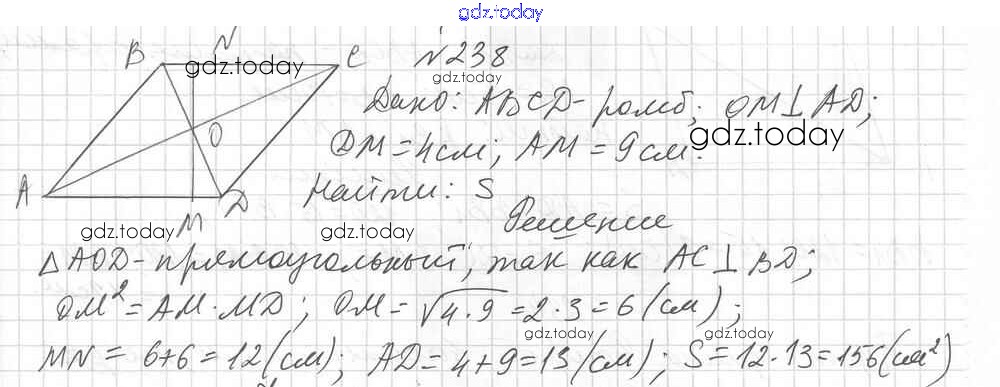 gdz.today
B N C №238
gdz.today
gdz.today
Дано: ABCD - ромб; OM⊥AD;
O
DM = 4см; AM = 9см.
gdz.today
A M D Найти: S
gdz.today
gdz.today
Решение
△AOD - прямоугольный, так как AC⊥BD;
OM² = AM·MD; OM = √4·9 = 2·3 = 6 (см);
gdz.today
gdz.today
MN = 6+6 = 12 (см); AD = 4+9 = 13 (см); S = 12·13 = 156 (см²)